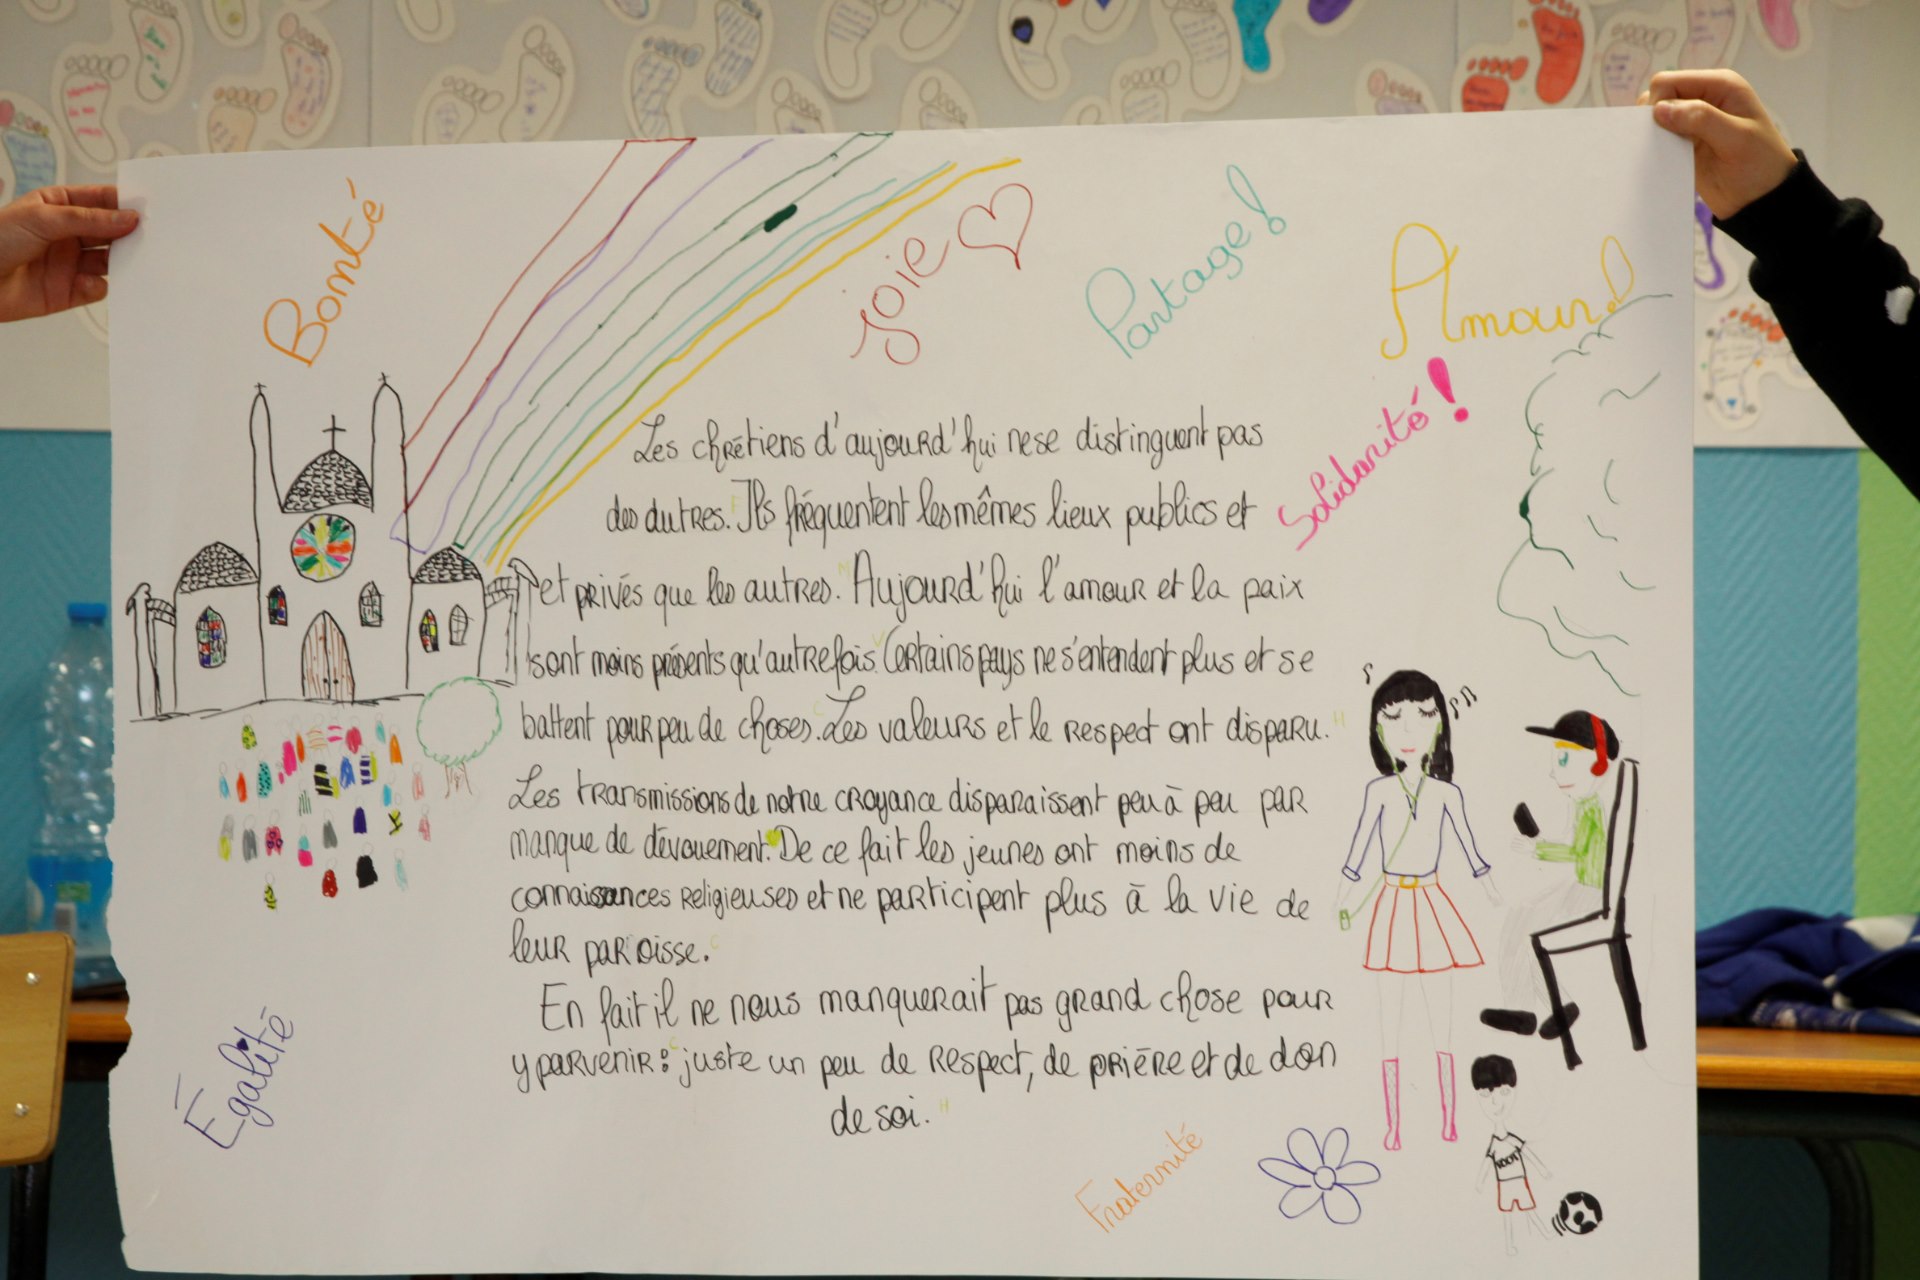 Bonté
Joie
Partage!
Amour!
Solidarité!
Les chrétiens d'aujourd'hui ne se distinguent pas
des autres. Ils fréquentent les mêmes lieux publics et
et privés que les autres. Aujourd'hui l'amour et la paix
sont moins présents qu'autrefois. Certains pays ne s'entendent plus et se
battent pour peu de choses. Les valeurs et le respect ont disparu.
Les transmissions de notre croyance disparaissent peu à peu par
manque de dévouement. De ce fait les jeunes ont moins de
connaissances religieuses et ne participent plus à la vie de
leur paroisse.
En fait il ne nous manquerait pas grand chose pour
y parvenir : juste un peu de respect, de prière et de don
de soi.
Égalité
Fraternité